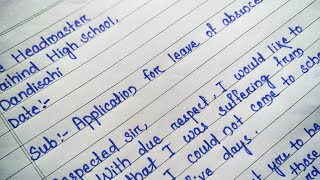 Headmaster
aihind High school,
Dandisahi
Date:-
Sub:- Application for leave of absence
spected sir,
With due respect I would like to
that I was suffering from
I could not come to scho
ive days.
t you to be
those
road